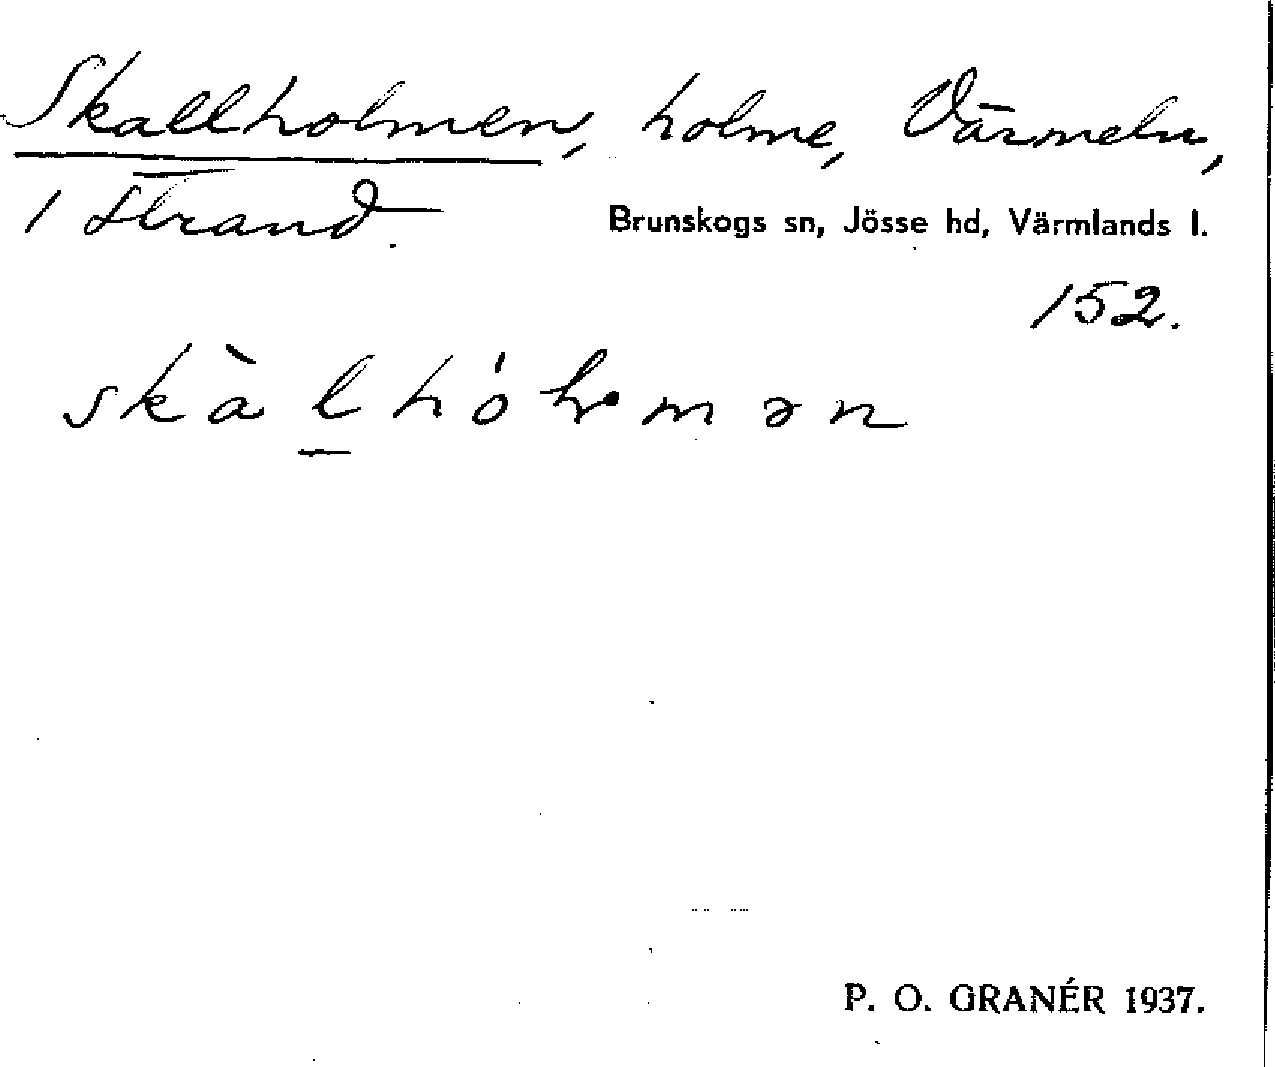 Skallholmen, holme, Värmeln,
1 Strand.
Brunskogs sn, Jösse hd, Värmlands l.
152.
skàl̲hóɫmən
P. O. GRANÉR 1937.